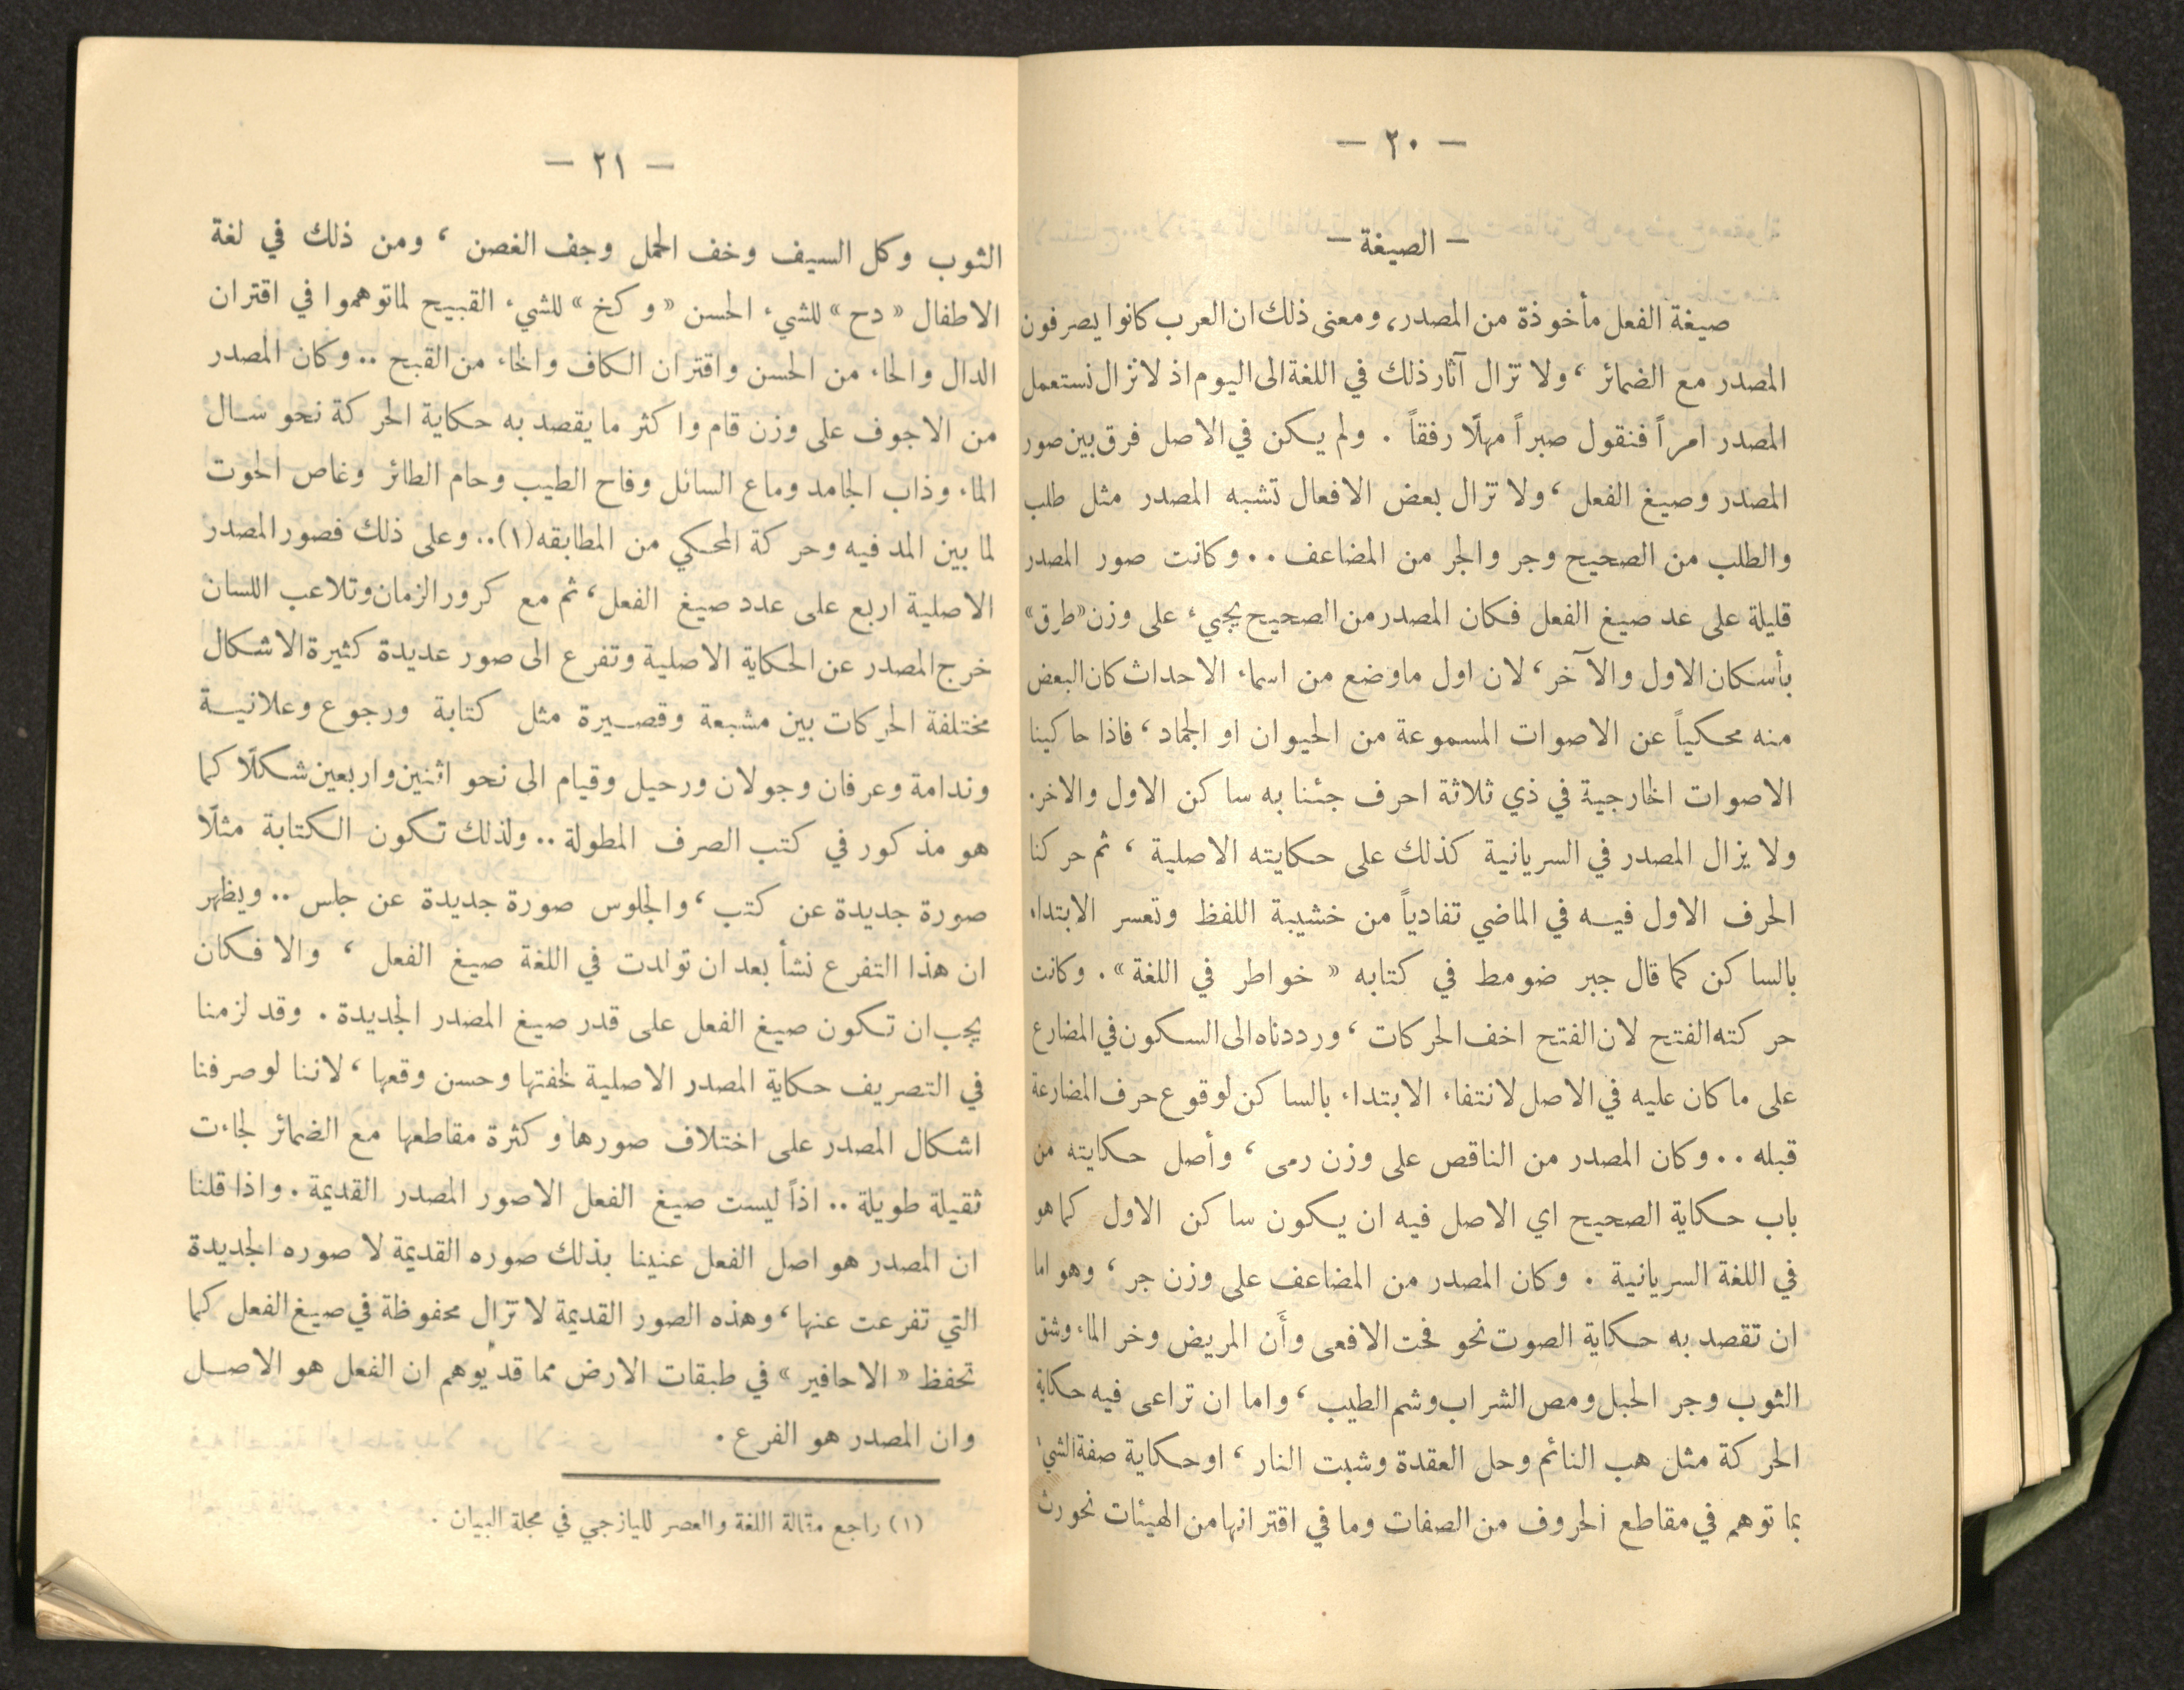 — ٢٠ —
— الصيغة —
صيغة الفعل مأخوذة من المصدر، ومعنى ذلك ان العرب كانوا يصرفون
المصدر مع الضمائر ، ولا تزال آثار ذلك في اللغة الى اليوم اذ لا نزال نستعمل
المصدر امراً فنقول صبراً مهلًا رفقاً . ولم يكن في الاصل فرق بين صور
المصدر وصيغ الفعل ، ولا تزال بعض الافعال تشبه المصدر مثل طلب
والطلب من الصحيح وجر والجر من المضاعف .. وكانت صور المصدر
قليلة على عد صيغ الفعل فكان المصدر من الصحيح يجيء على وزن «طرق»
بأسكان الاول والآخر ، لان اول ما وضع من اسماء الاحداث كان البعض
منه محكياً عن الاصوات المسموعة من الحيوان او الجماد ، فاذا حاكينا
الاصوات الخارجية في ذي ثلاثة احرف جئنا به ساكن الاول والاخر.
ولا يزال المصدر في السريانية كذلك على حكايته الاصلية ، ثم حركنا
الحرف الاول فيه في الماضي تفادياً من خشيبة اللفظ وتعسر الابتداء
بالساكن كما قال جبر ضومط في كتابه « خواطر في اللغة » . وكانت
حركته الفتح لان الفتح اخف الحركات ، ورددناه الى السكون في المضارع
على ما كان عليه في الاصل لانتفاء الابتداء بالساكن لوقوع حرف المضارعة
قبله .. وكان المصدر من الناقص على وزن رمى ، وأصل حكايته من
باب حكاية الصحيح اي الاصل فيه ان يكون ساكن الاول كما هو
في اللغة السريانية . وكان المصدر من المضاعف على وزن جر ، وهو اما
ان تقصد به حكاية الصوت نحو فحت الافعى وأَن المريض وخر الماء وشق
الثوب وجر الحبل ومص الشراب وشم الطيب ، واما ان تراعى فيه حكاية
الحركة مثل هب النائم وحل العقدة وشبت النار ، او حكاية صفة الشيء
بما توهم في مقاطع الحروف من الصفات وما في اقترانها من الهيئات نحو رث
— ٢١ —
الثوب وكل السيف وخف الحمل وجف الغصن ، ومن ذلك في لغة
الاطفال « دح » للشيء الحسن « وكخ » للشيء القبيح لما توهموا في اقتران
الدال والحاء من الحسن واقتران الكاف والخاء من القبح .. وكان المصدر
من الاجوف على وزن قام واكثر ما يقصد به حكاية الحركة نحو سال
الماء وذاب الجامد وماع السائل وفاح الطيب وحام الطائر وغاص الحوت
لما بين المد فيه وحركة المحكي من المطابقه (١).. وعلى ذلك فصور المصدر
الاصلية اربع على عدد صيغ الفعل، ثم مع كرور الزمان وتلاعب اللسان
خرج المصدر عن الحكاية الاصلية وتفرع الى صور عديدة كثيرة الاشكال
مختلفة الحركات بين مشبعة وقصيرة مثل كتابة ورجوع وعلانية
وندامة وعرفان وجولان ورحيل وقيام الى نحو اثنين واربعين شكلًا كما
هو مذكور في كتب الصرف المطولة .. ولذلك تكون الكتابة مثلًا
صورة جديدة عن كتب ، والجلوس صورة جديدة عن جلس .. ويظهر
ان هذا التفرع نشأ بعد ان تولدت في اللغة صيغ الفعل ، والا فكان
يجب ان تكون صيغ الفعل على قدر صيغ المصدر الجديدة . وقد لزمنا
في التصريف حكاية المصدر الاصلية لخفتها وحسن وقعها ، لاننا لو صرفنا
اشكال المصدر على اختلاف صورها وكثرة مقاطعها مع الضمائر لجاءت
ثقيلة طويلة .. اذاً ليست صيغ الفعل الا صور المصدر القديمة . واذا قلنا
ان المصدر هو اصل الفعل عنينا بذلك صوره القديمة لا صوره الجديدة
التي تفرعت عنها ، وهذه الصور القديمة لا تزال محفوظة في صيغ الفعل كما
تحفظ « الاحافير » في طبقات الارض مما قد يوهم ان الفعل هو الاصل
وان المصدر هو الفرع .
(١) راجع مقالة اللغة والعصر لليازجي في مجلة البيان .